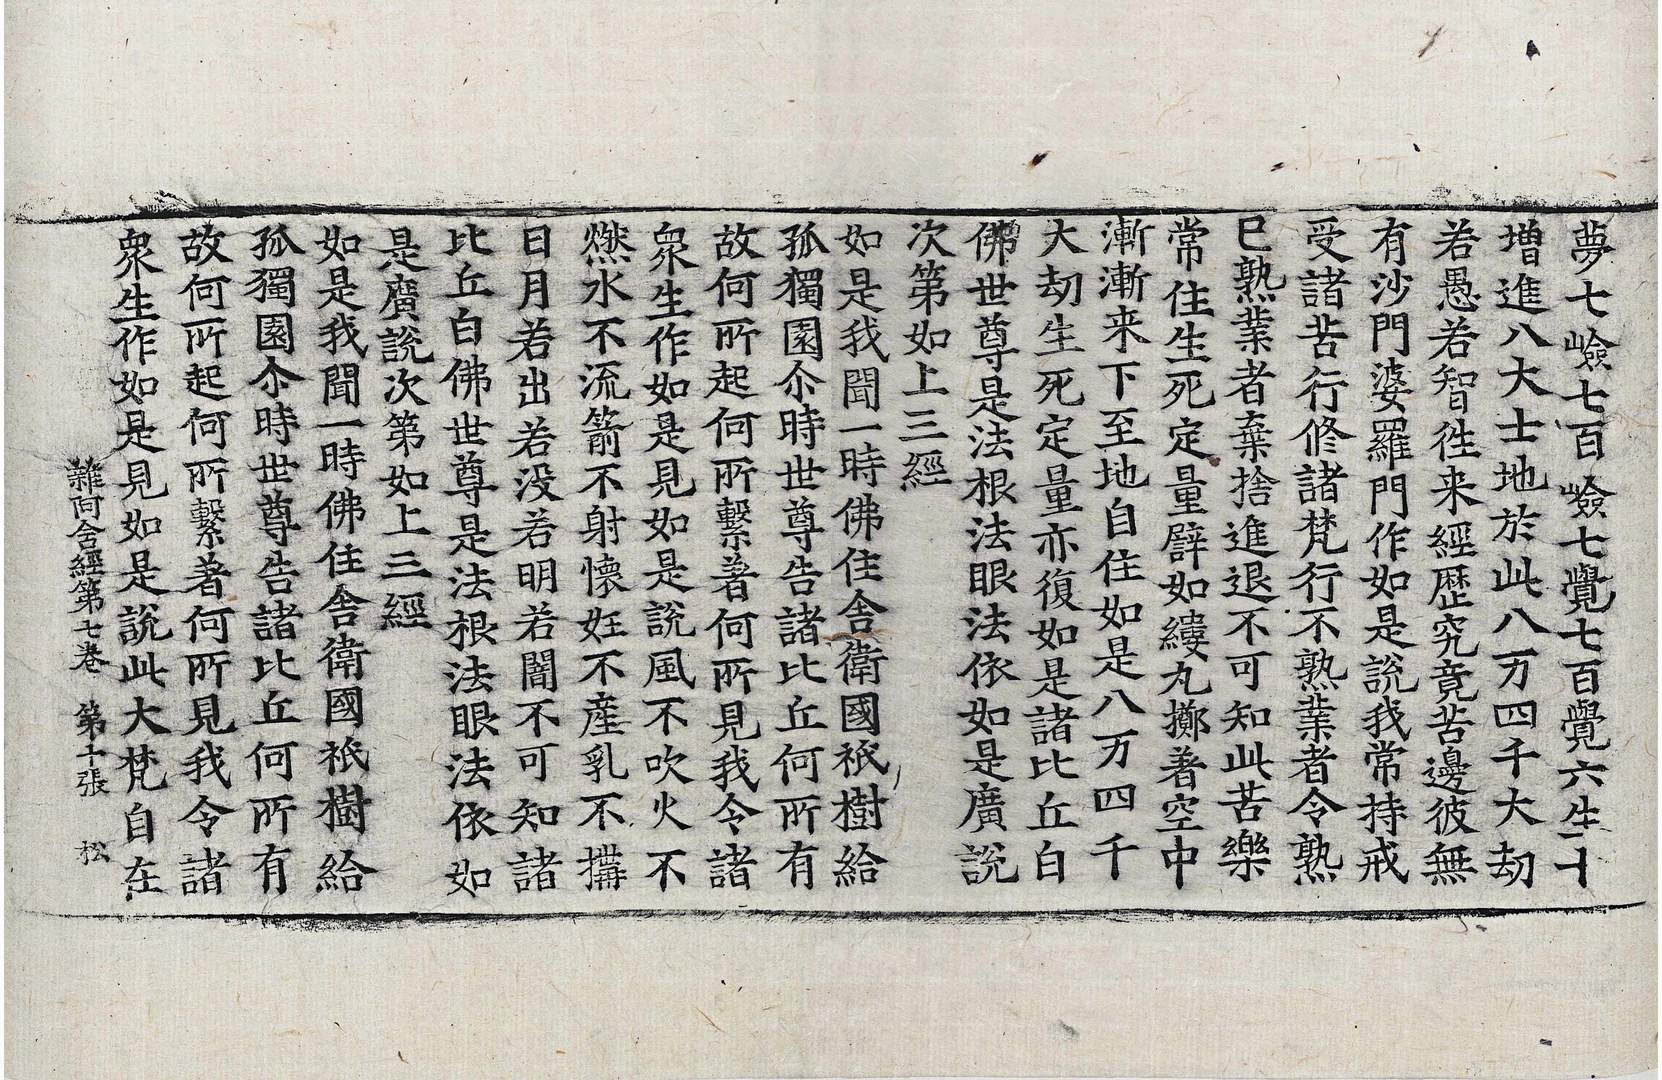 夢七嶮七百嶮七覺七百覺六生十
增進八大士地於此八万四千大劫
若愚若智徃来經歷究竟苦邊彼無
有沙門婆羅門作如是說我常持戒
受諸苦行修諸梵行不熟業者令熟
已熟業者棄捨進退不可知此苦樂
常住生死定量譬如縷丸擲著空中
漸漸来下至地自住如是八万四千
大劫生死定量亦復如是諸比丘白
佛世尊是法根法眼法依如是廣說
次第如上三經
如是我聞一時佛住舍衛國祇樹給
孤獨園尒時世尊告諸比丘何所有
故何所起何所繫著何所見我令諸
衆生作如是見如是說風不吹火不
燃水不流箭不射懷妊不產乳不搆
日月若出若没若明若闇不可知諸
比丘白佛世尊是法根法眼法依如
是廣說次第如上三經
如是我聞一時佛住舍衛國祇樹給
孤獨園尒時世尊告諸比丘何所有
故何所起何所繫著何所見我令諸
衆生作如是見如是說此大梵自在
雜阿含經第七卷　第十張　松